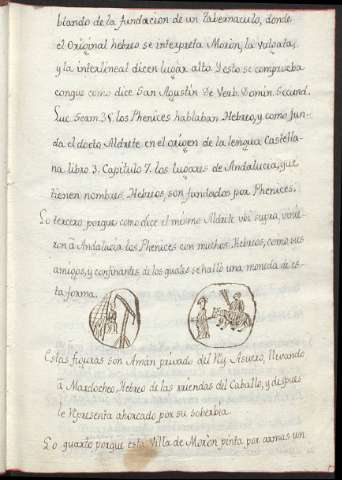 blando de la fundacion de un Tabernaculo, donde
el Original hebreo se interpreta Moron, la Vulgata,
y la interlineal dicen lugar alto. Y esto se comprueba
conque como dice San Agustin De Verb. Domin. Secund.
Luc. Seam. 35. los Phenices hablaban Hebreo, y como fun-
da el docto Aldrete en el origen de la lengua Castella-
na libro 3. Capitulo 7. los lugares de Andalucia, que
tienen nombres Hebreos, son fundados por Phenices.
Lo tercero porque como dice el mismo Aldrete ubi supra, vinie-
ron à Andalucia los Phenices con muchos Hebreos, como sus
amigos, y confinantes de los quales se hallò una moneda de es-
ta forma.
Estas figuras son Amàn privado del Rey Asuero, llevando
à Mardocheo, Hebreo de las riendas del Caballo, y despues
le representa ahorcado por su soberbia.
Lo quarto porque esta Villa de Moron pinta por armas un